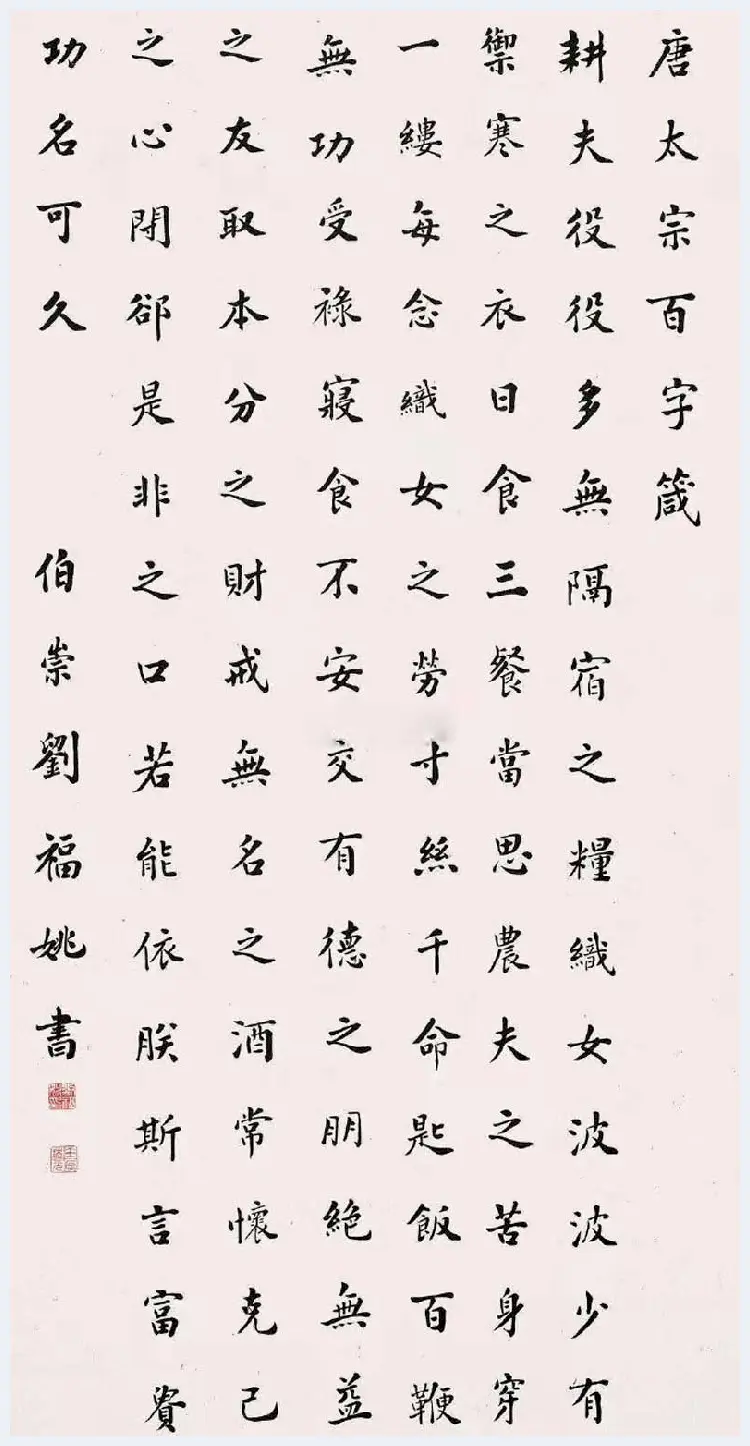 唐太宗百字箴
耕夫役役多無隔宿之糧織女波波少有
禦寒之衣日食三餐當思農夫之苦身穿
一縷每念織女之勞寸絲千命匙飯百鞭
無功受祿寢食不安交有德之朋絕無益
之友取本分之財戒無名之酒常懷克己
之心閉郤是非之口若能依朕斯言富貴
功名可久
伯崇劉福姚書